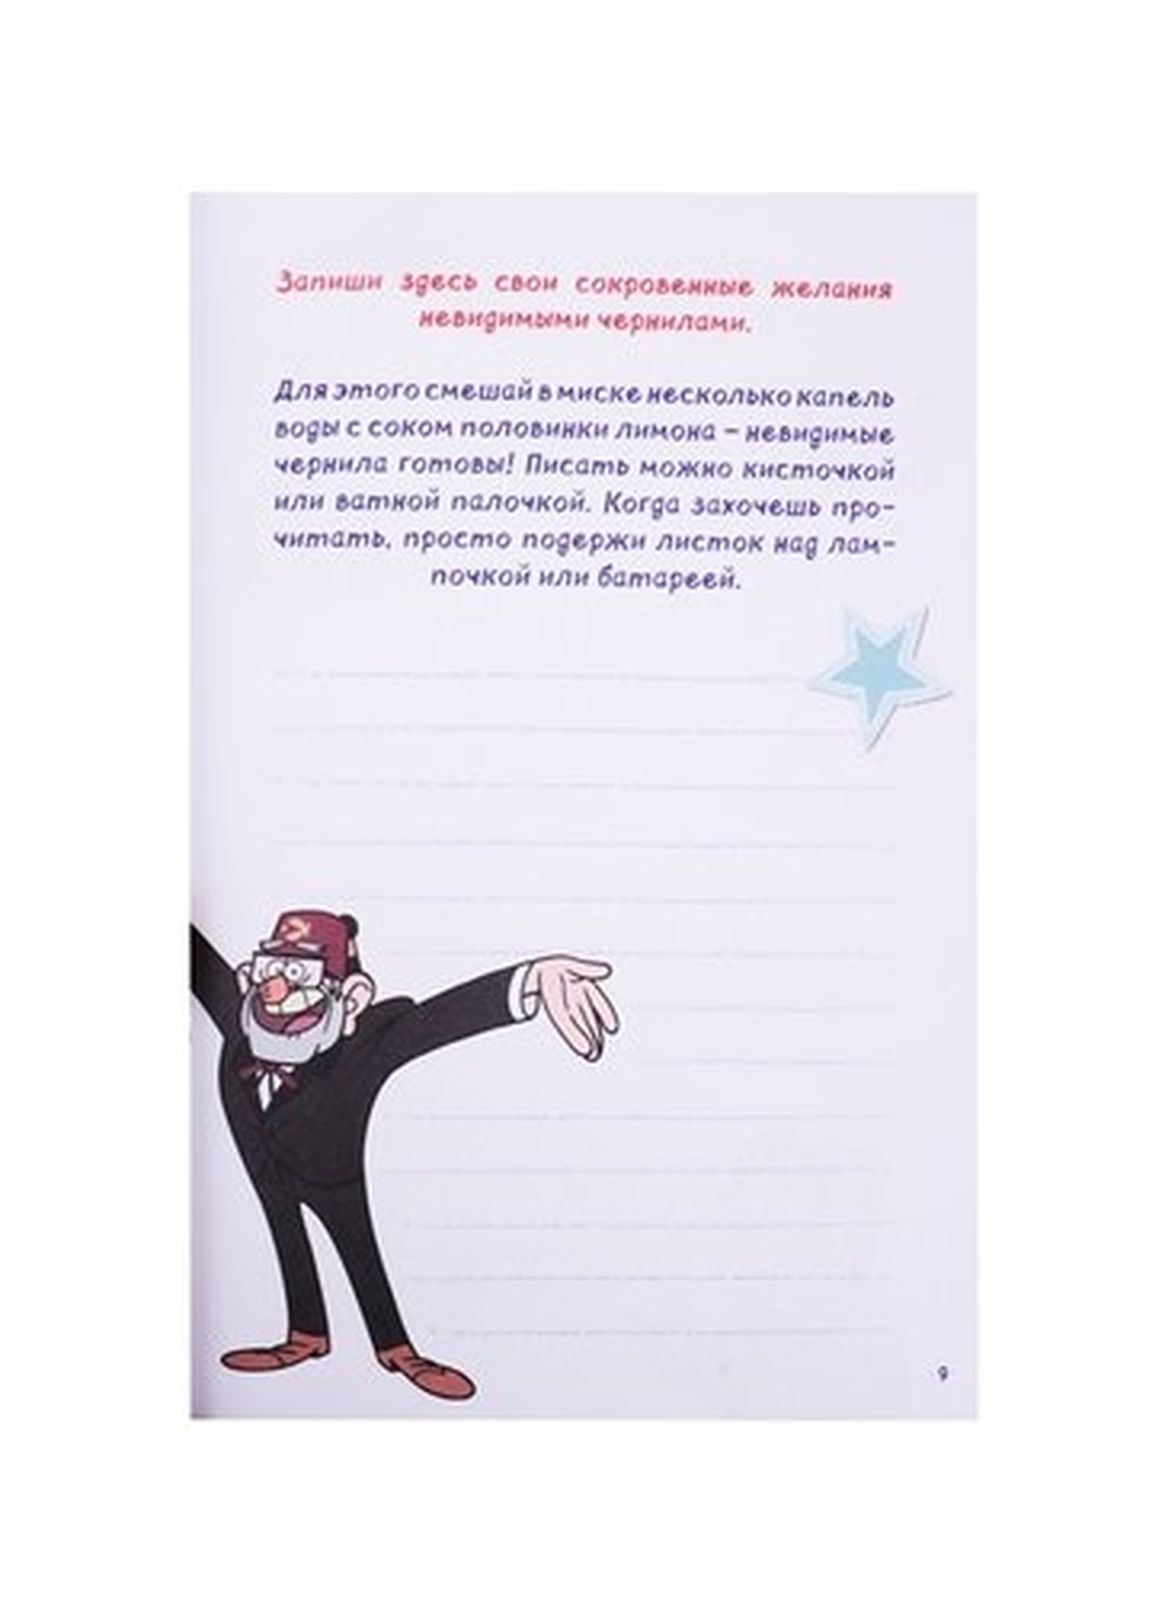 Запиши здесь свои сокровенные желания
невидимыми чернилами.
Для этого смешай в миске несколько капель
воды с соком половинки лимона – невидимые
чернила готовы! Писать можно кисточкой
или ватной палочкой. Когда захочешь про-
читать, просто подержи листок над лам-
почкой или батареей.
9